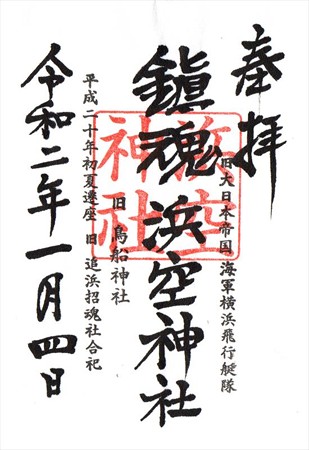 奉拝
旧大日本帝国海軍横浜飛行艇隊
鎮魂浜空神社
浜空
神社
旧鳥船神社
平成二十年初夏遷座 旧 追浜招魂社合祀
令和二年一月四日